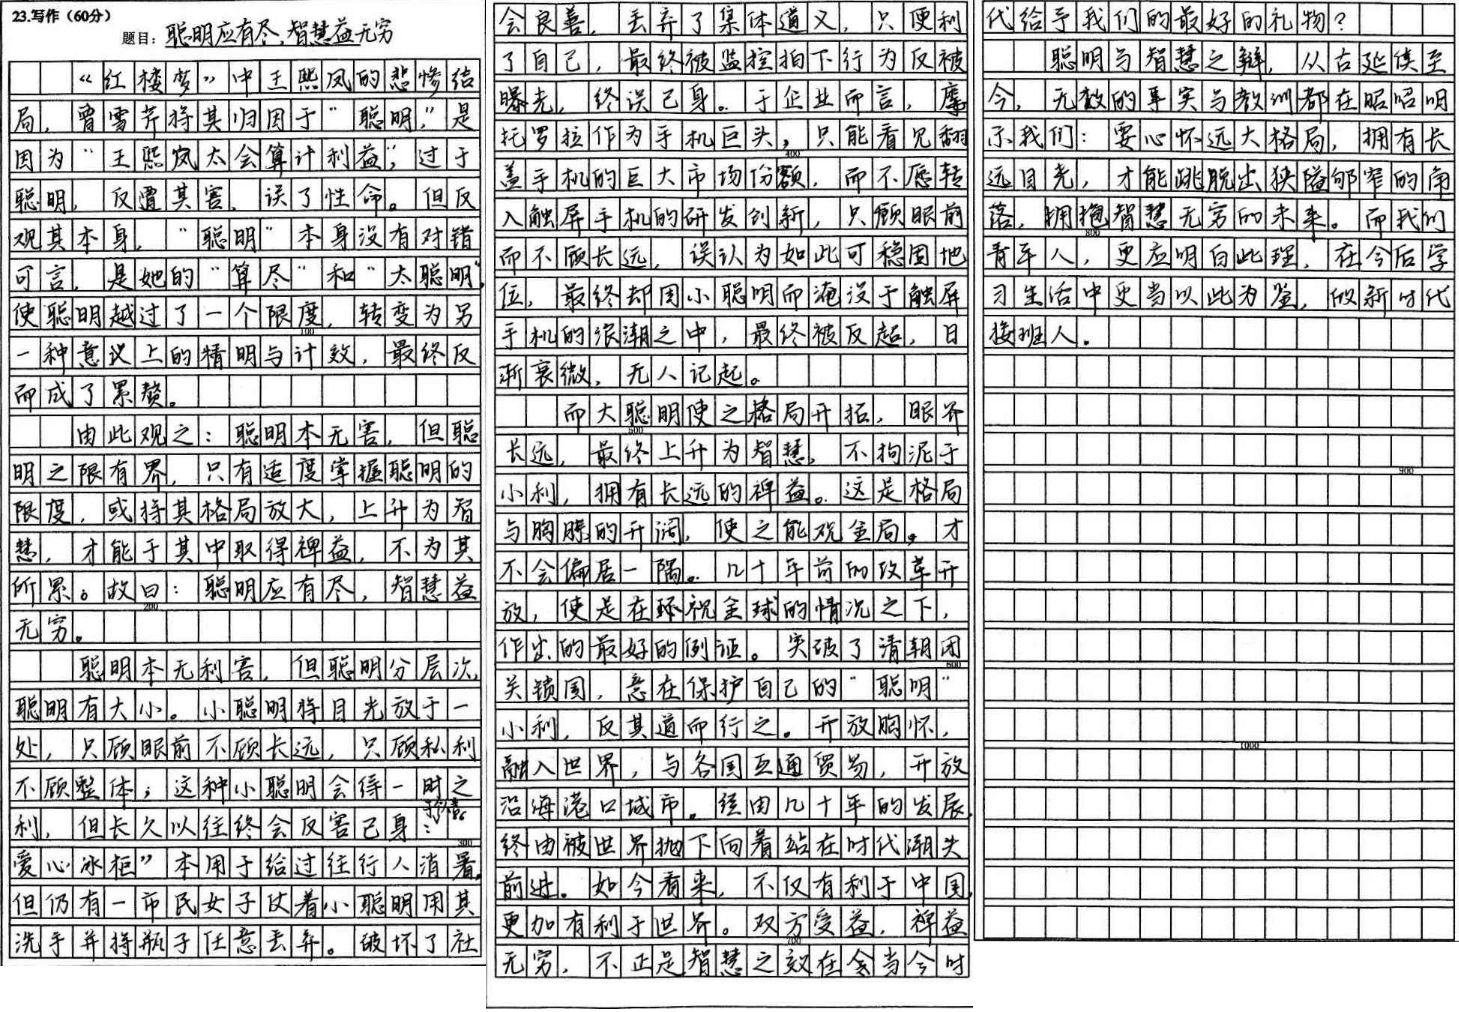 23.写作（60分）
题目：聪明应有尽,智慧益无穷
“红楼梦”中王熙凤的悲惨结
局，曹雪芹将其归因于“聪明，”是
因为“王熙凤太会算计利益”，过于
聪明，反遭其害，误了性命。但反
观其本身，“聪明”本身没有对错
可言，是她的“算尽”和“太聪明”，
使聪明越过了一个限度，转变为另
100
一种意义上的精明与计较，最终反
而成了累赘。
由此观之：聪明本无害，但聪
明之限有界，只有适度掌握聪明的
限度，或将其格局放大，上升为智
慧，才能于其中取得裨益，不为其
所累。故曰：聪明应有尽，智慧益
200
无穷。
聪明本无利害，但聪明分层次，
聪明有大小。小聪明将目光放于一
处，只顾眼前不顾长远，只顾私利
不顾整体；这种小聪明会得一时之
利，但长久以往终会反害己身：
300
爱心冰柜”本用于给过往行人消暑。
但仍有一市民女子仗着小聪明用其
洗手并将瓶子任意丢弃。破坏了社
会良善，丢弃了集体道义，只便利
了自己，最终被监控拍下行为反被
曝光，终误己身。于企业而言，摩
托罗拉作为手机巨头，只能看见翻
400
盖手机的巨大市场份额，而不愿转
入触屏手机的研发创新，只顾眼前
而不顾长远，误认为如此可稳固地
位，最终却因小聪明而淹没于触屏
手机的浪潮之中，最终被反超，日
渐衰微，无人记起。
而大聪明使之格局开拓，眼界
500
长远，最终上升为智慧，不拘泥于
小利，拥有长远的裨益。这是格局
与胸膛的开阔，使之能观全局，才
不会偏居一隅。几十年前的改革开
放，便是在环视全球的情况之下，
作出的最好的例证。突破了清朝闭
600
关锁国，意在保护自己的“聪明”
小利，反其道而行之。开放胸怀，
融入世界，与各国互通贸易，开放
沿海港口城市。经由几十年的发展，
终由被世界抛下向着站在时代潮头
前进。如今看来，不仅有利于中国，
更加有利于世界。双方受益，裨益
700
无穷，不正是智慧之效在会当今时
代给予我们的最好的礼物？
聪明与智慧之辩，从古延续至
今，无数的事实与教训都在昭昭明
示我们：要心怀远大格局，拥有长
远目光，才能跳脱出狭隘郇窄的角
落，拥抱智慧无穷的未来。而我们
800
青年人，更应明白此理，在今后学
习生活中更当以此为鉴，做新时代
接班人．
900
1000